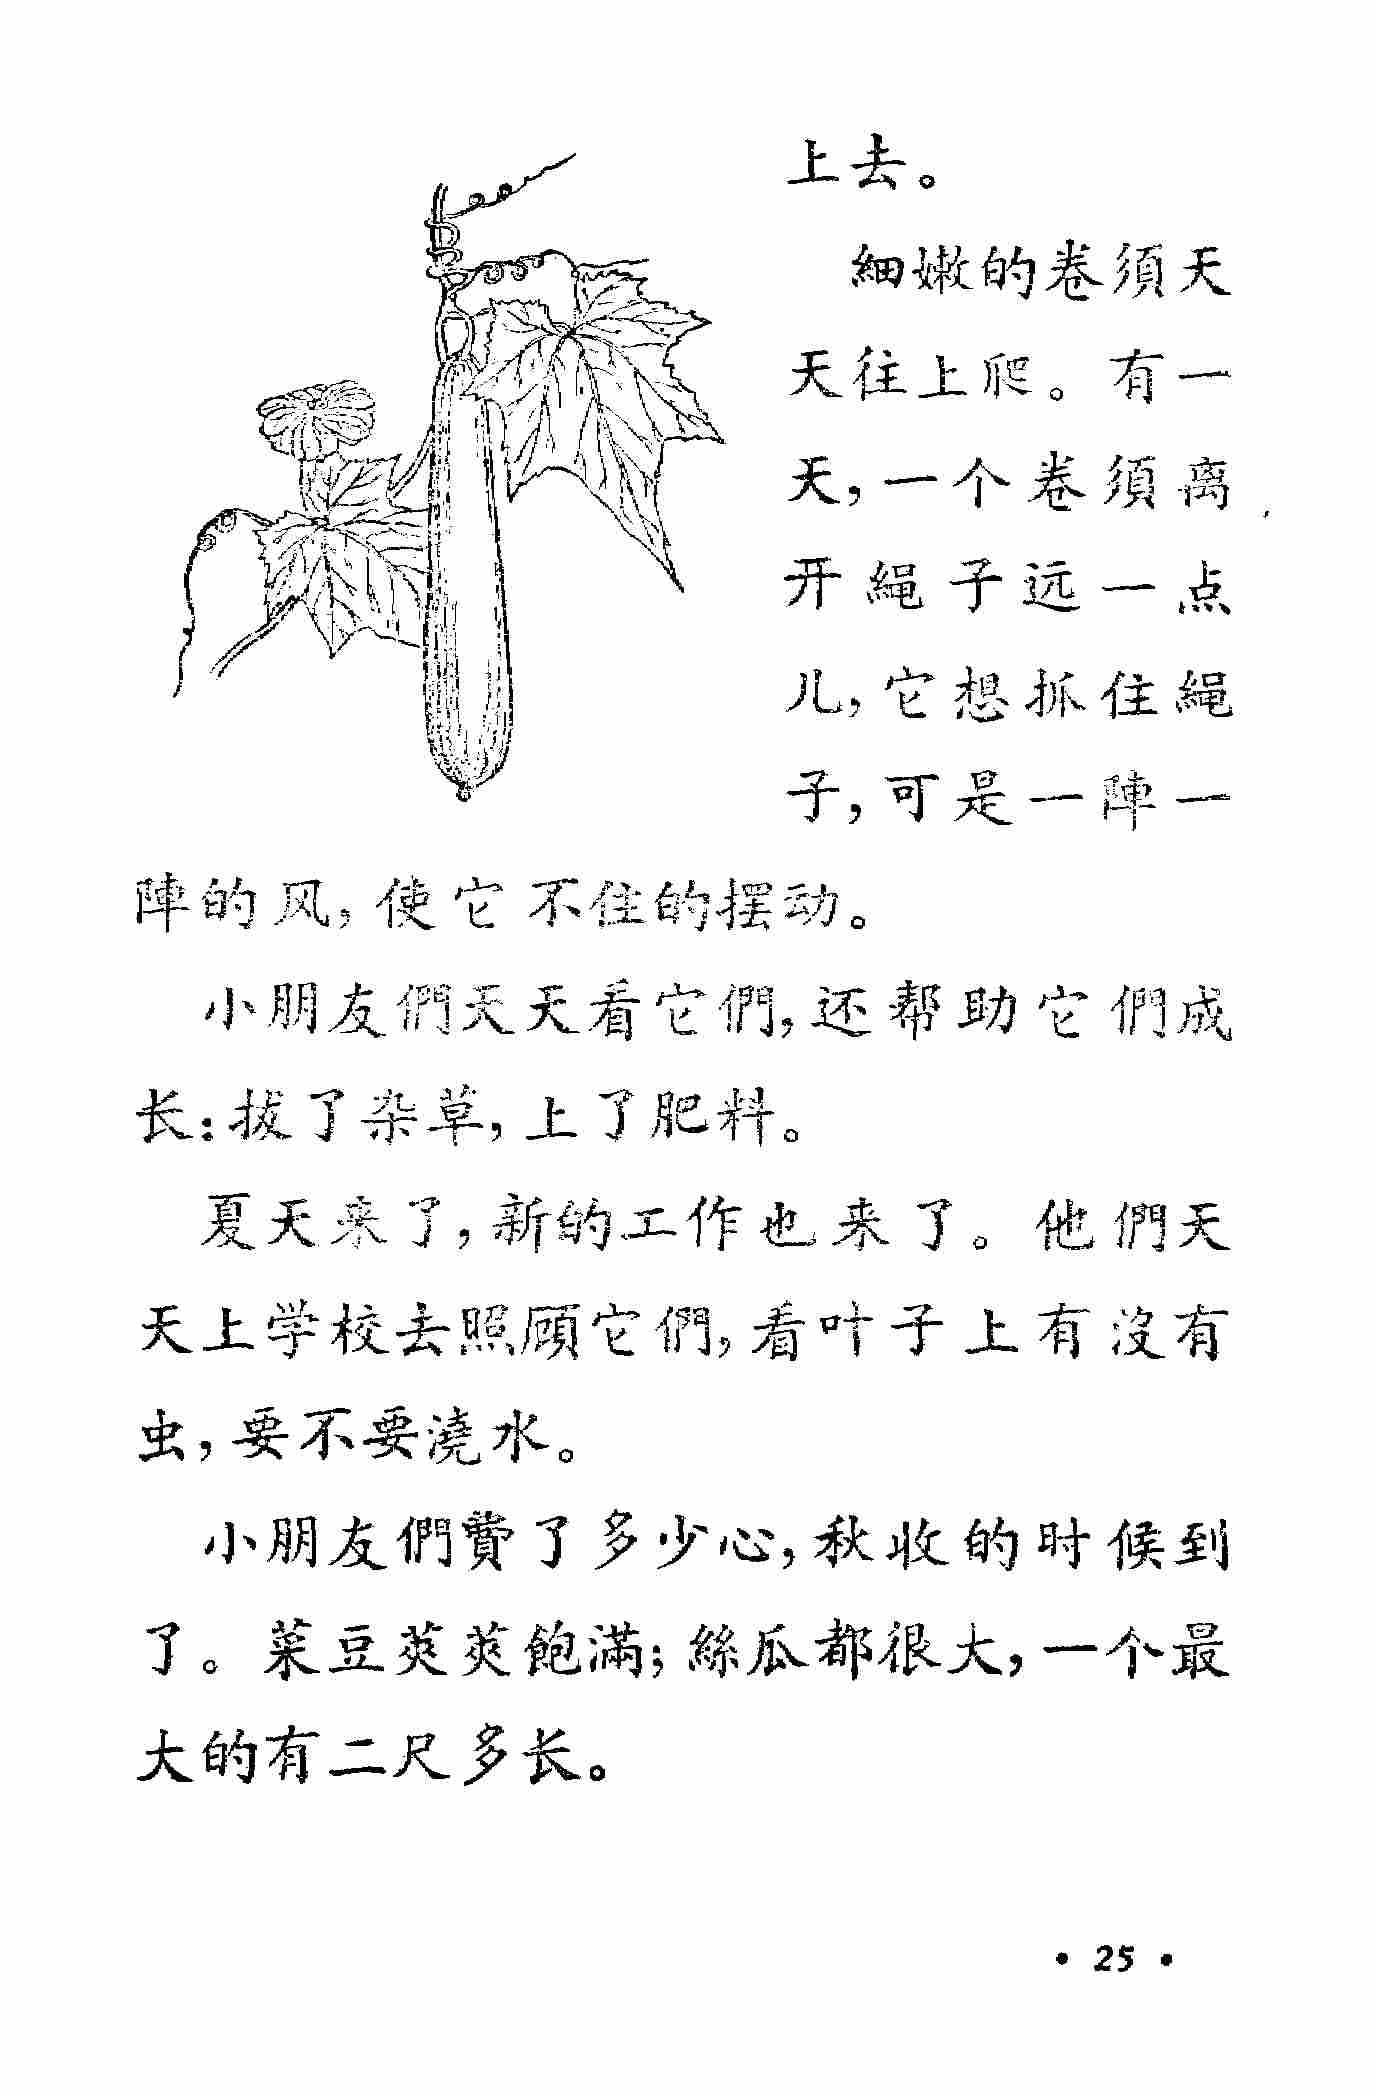 上去。
細嫩的卷須天
天往上爬。有一
天，一个卷須离
开繩子远一点
儿，它想抓住繩
子，可是一陣一
陣的风，使它不住的摆动。
小朋友們天天看它們，还帮助它們成
长：拔了杂草，上了肥料。
夏天来了，新的工作也来了。他們天
天上学校去照顾它們，看叶子上有沒有
虫，要不要澆水。
小朋友們費了多少心，秋收的时候到
了。菜豆莢莢飽滿；絲瓜都很大，一个最
大的有二尺多长。
• 25 •